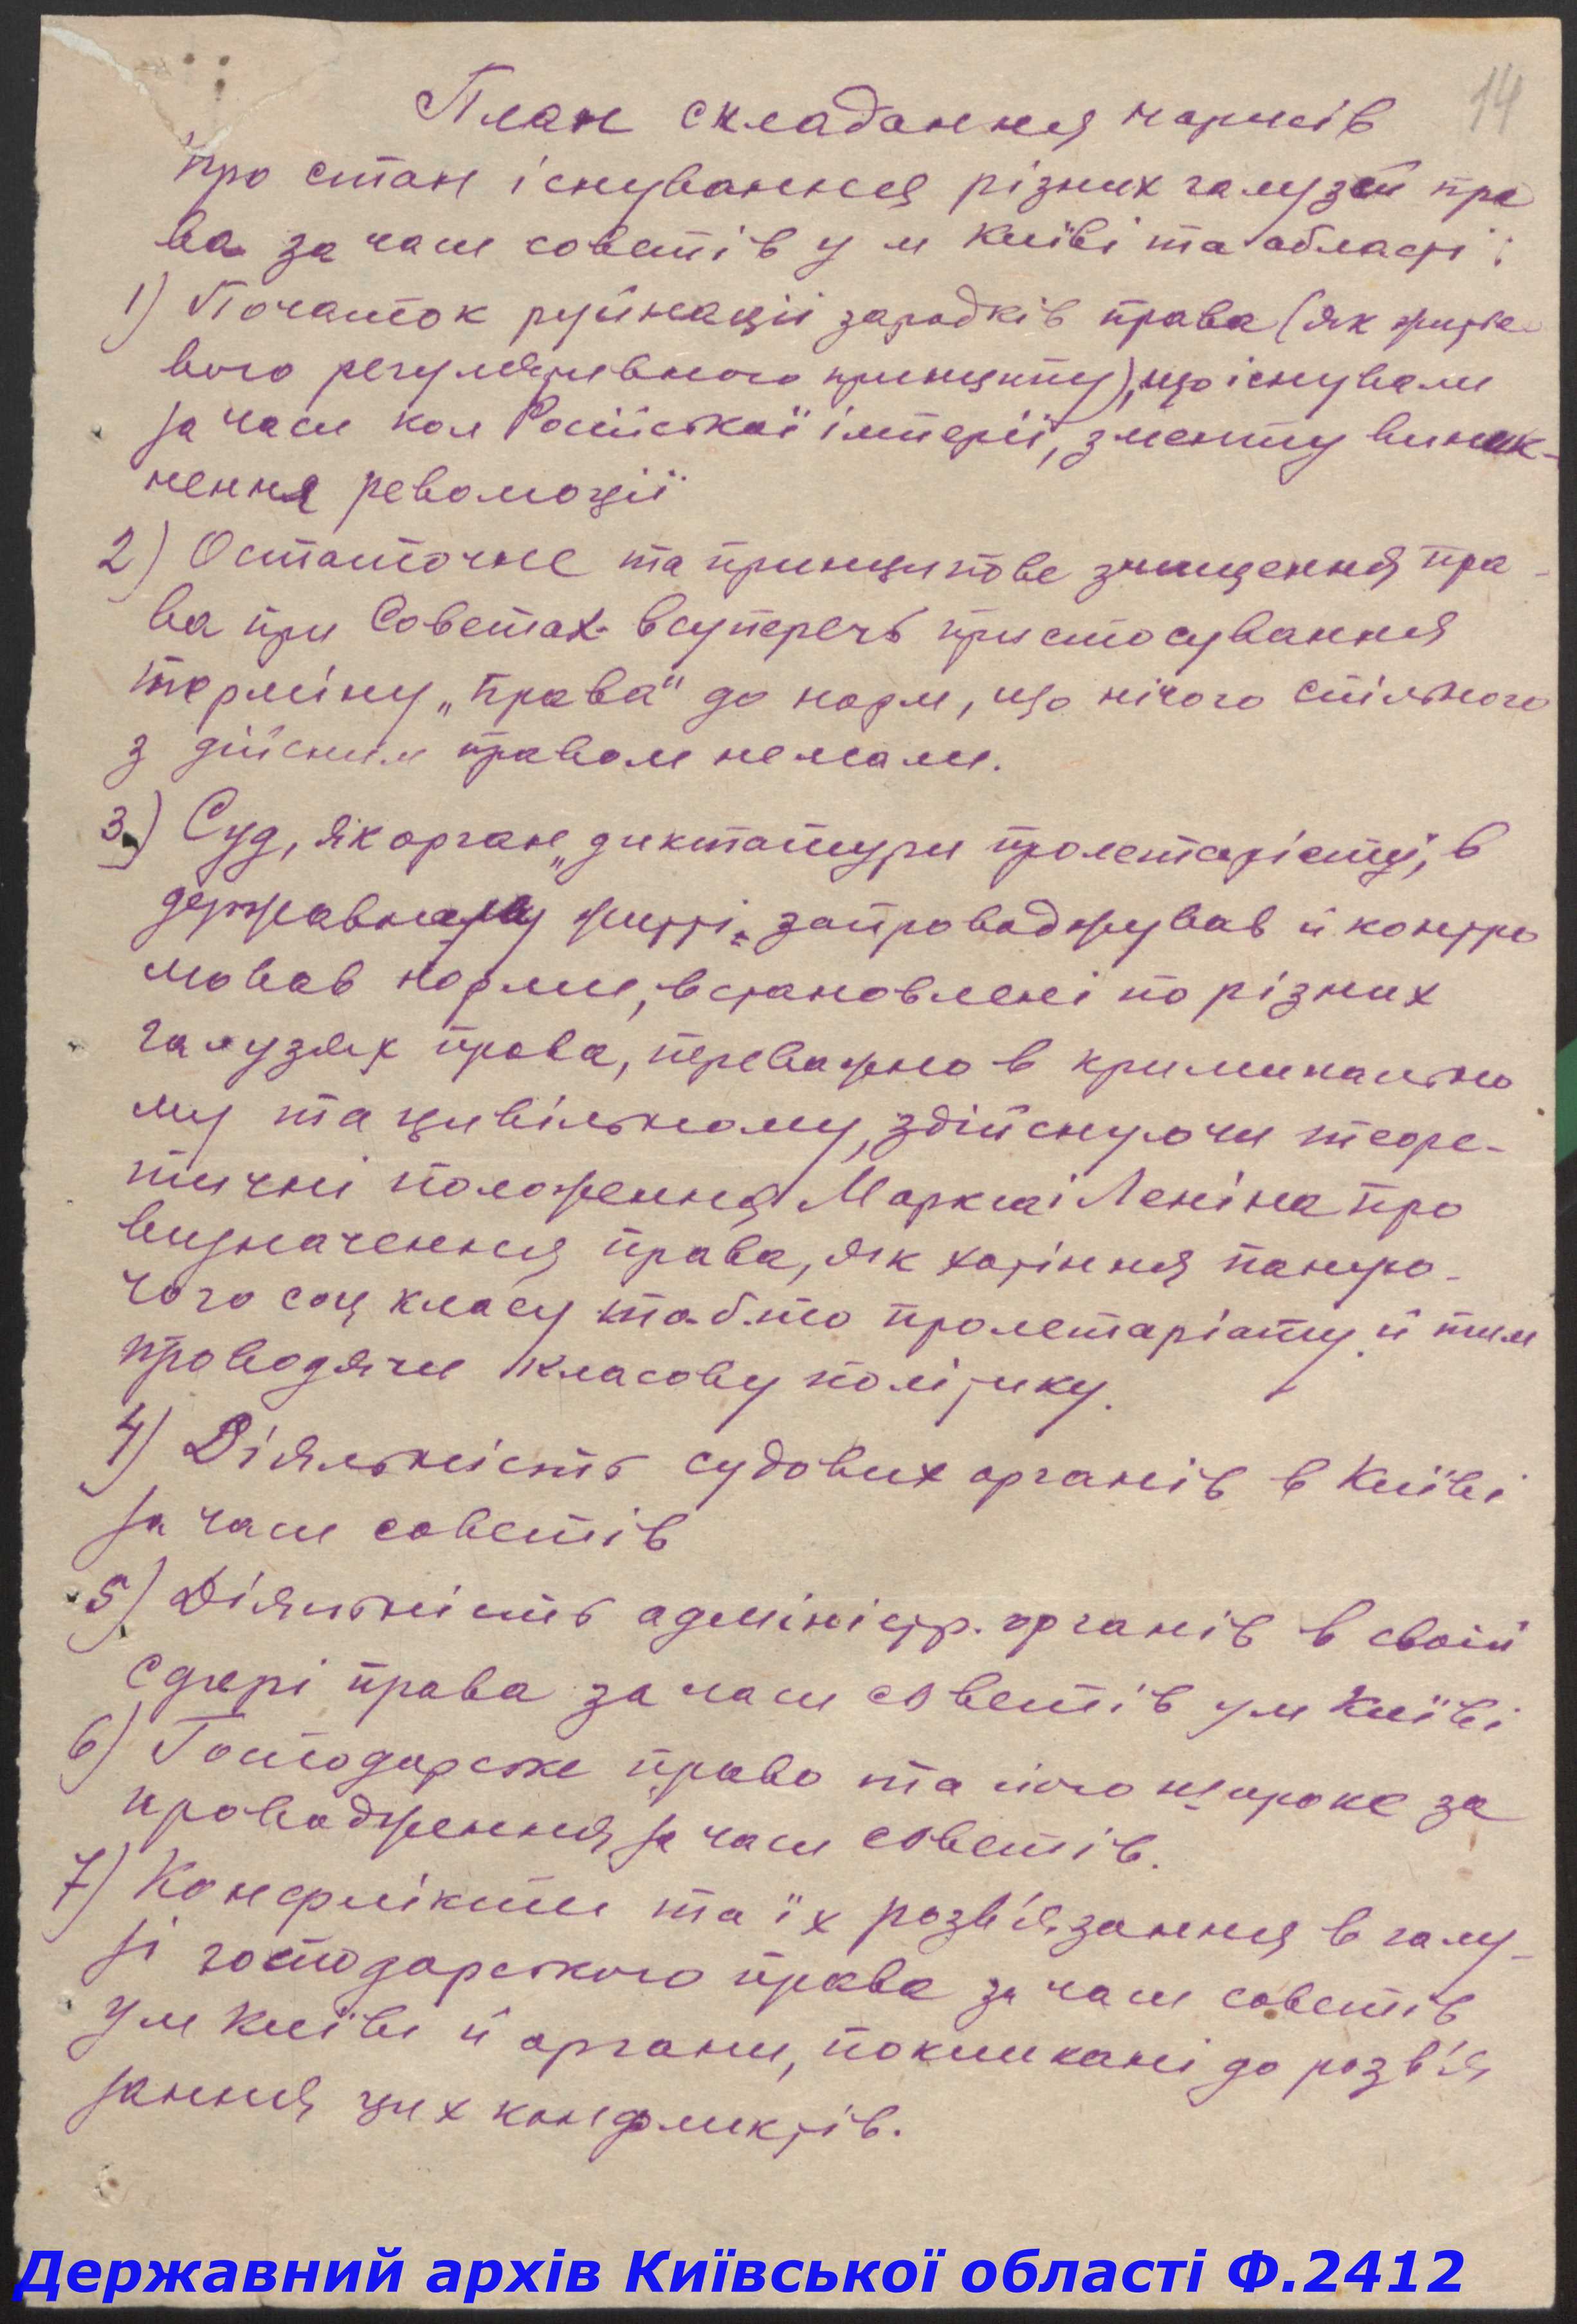 14
План складання нарисів
про стан існування різних галузей пра
ва за часи советів у м Київі та області:
1) Початок руйнації зародків права (як життє
вого регулятивного принципу), що існували
за часи кол Російської імперії, з менту виник-
нення революції
2) Остаточне та принципове знищення пра-
ва при Советах всупереч пристосування
терміну „права" до норм, що нічого спільного
з дійсним правом не мали.
3) Суд, як орган „диктатури пролетаріяту, в
державному житті" запроваджував й контро
лював норми, встановлені по різних
галузях права, переважно в криминально
му та цивільному, здійснуючи теоре-
тичні положення Маркса і Леніна про
визначення права, як хотіння пануро-
чого соц класу тобто пролетаріату й тим
проводячи класову політику.
4) Діяльність судових органів в Київі
за часи советів
5) Діяльність адміністр. органів в своїй
сфері права за часи советів у м Київі
6) Господарське право та його широке за
провадження за часи советів.
7) Конфлікти та їх розв'язання в галу-
зі господарського права за часи советів
у м Київі й органи, покликані до розв'я
зання цих конфликтів.
Державний архів Київської області Ф.2412